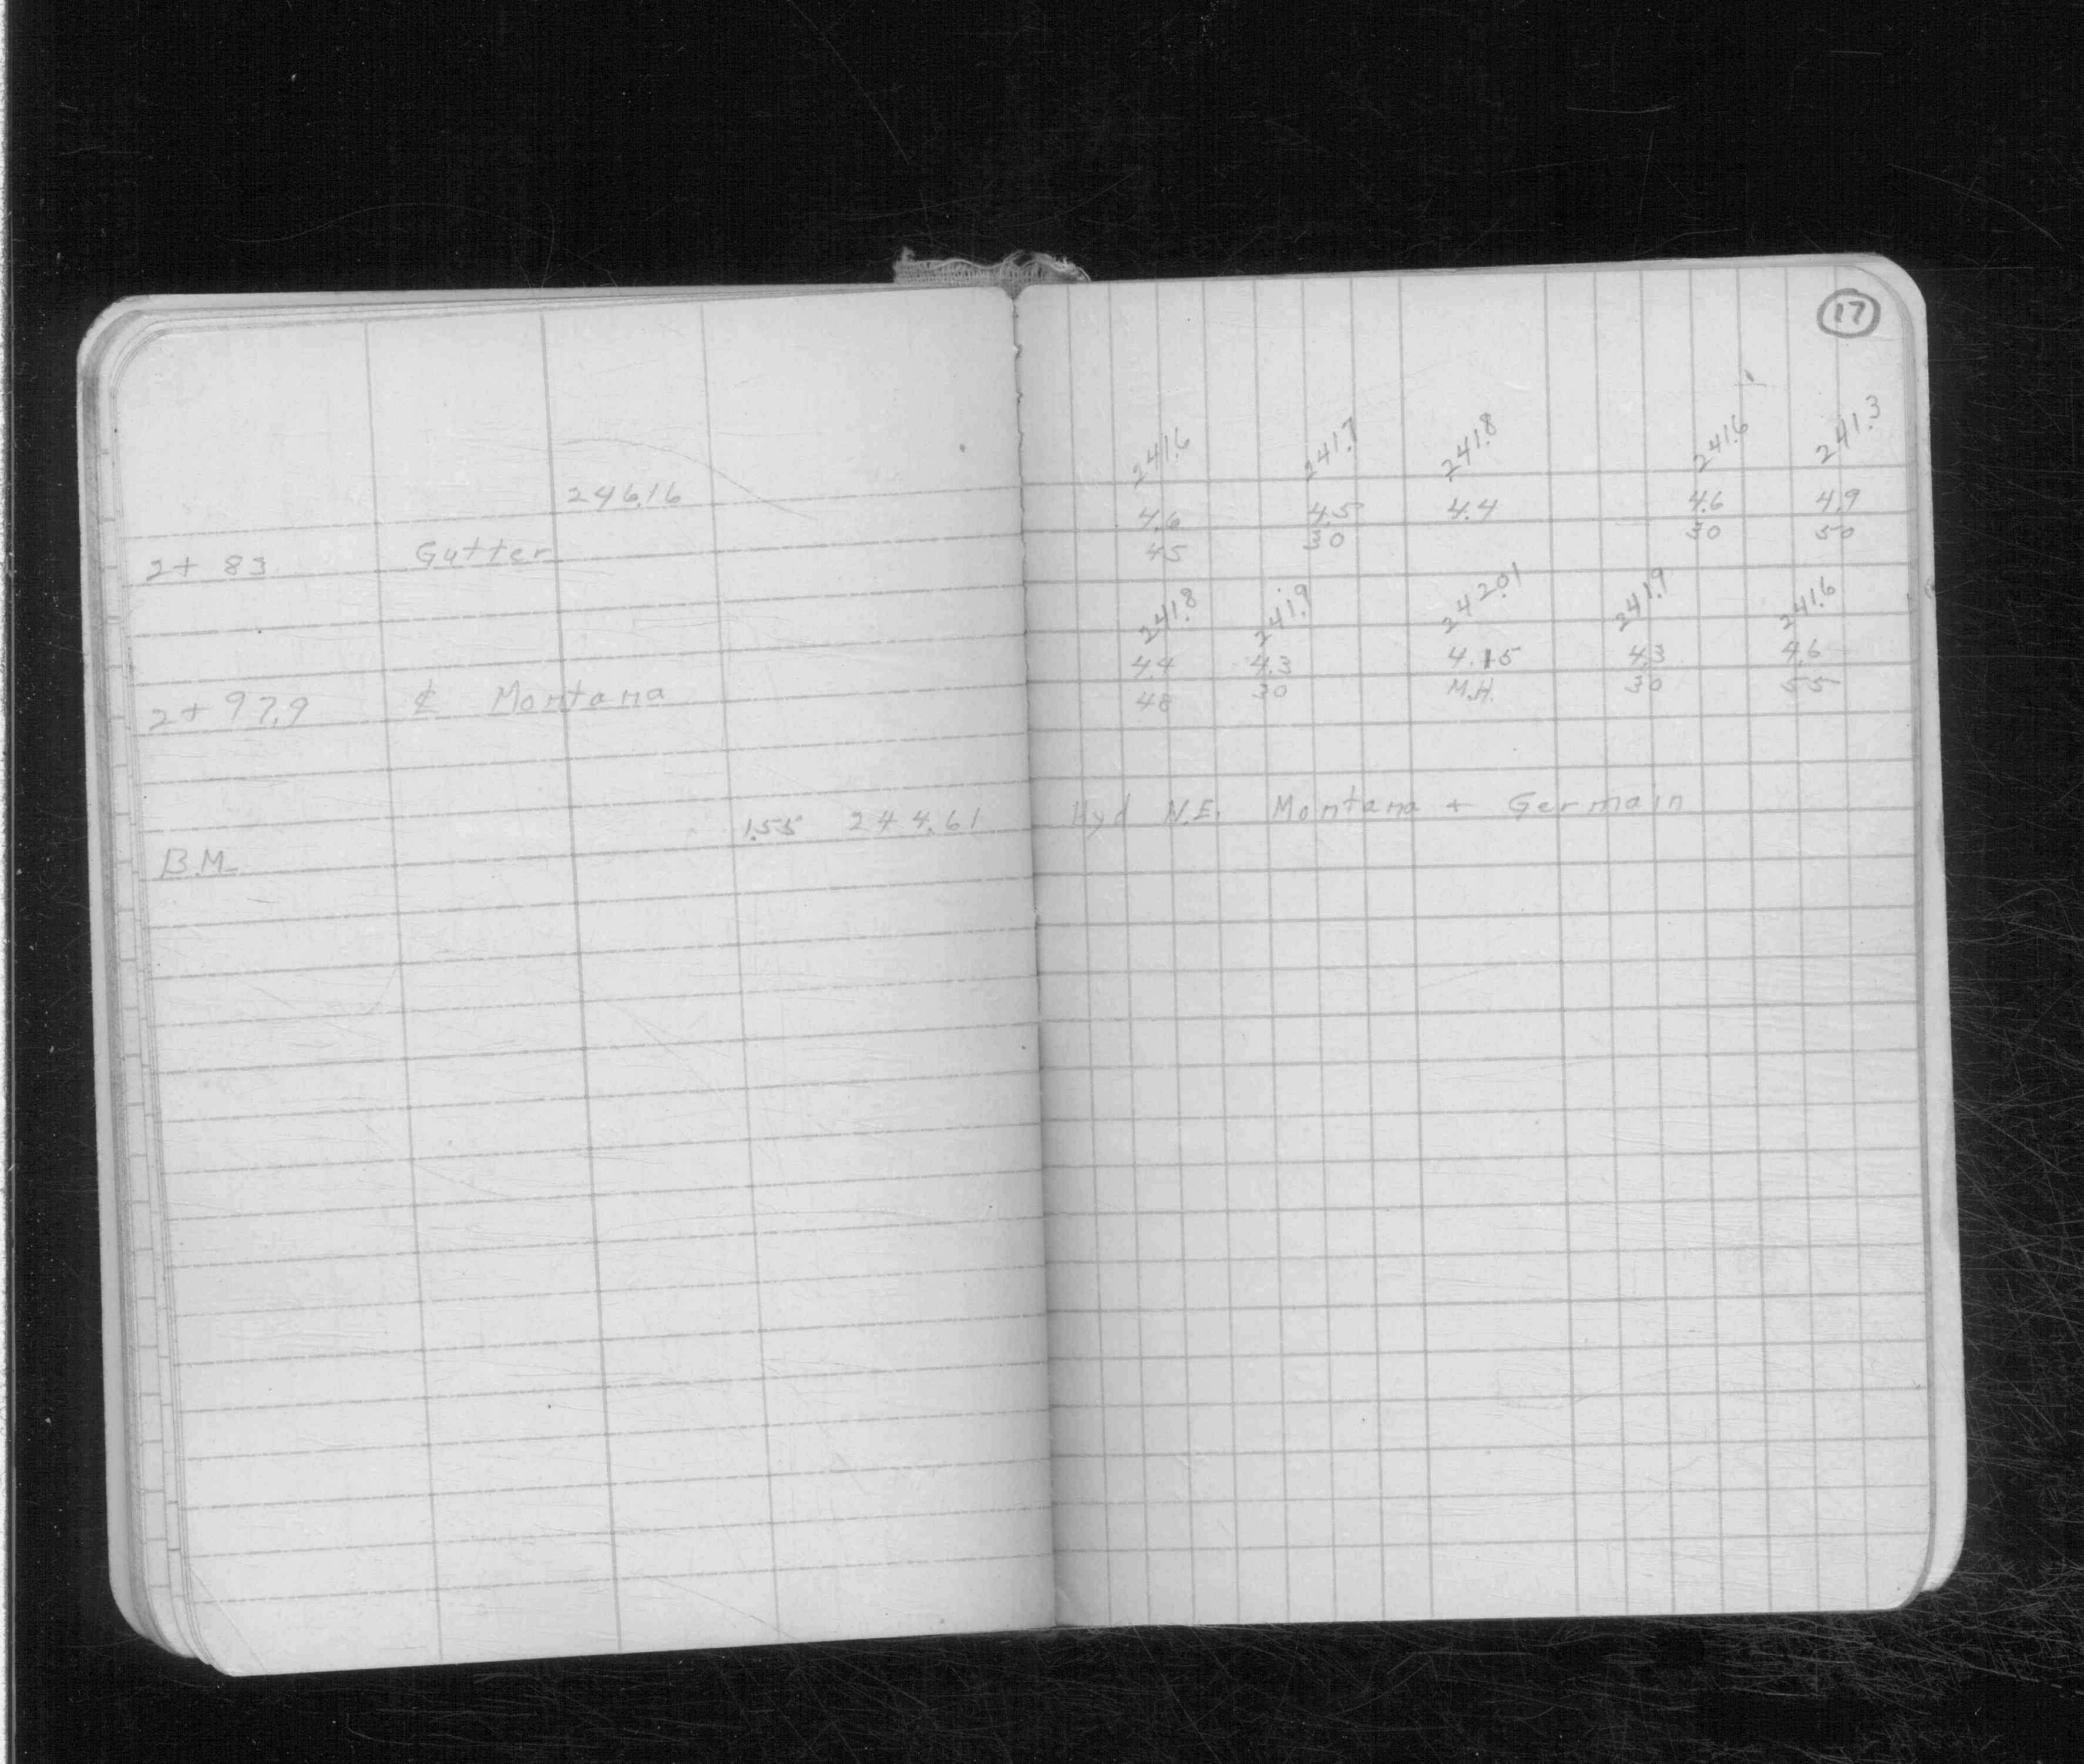 246.16
2+ 83 Gutter
2+ 97.9 ₵ Montana
1.55 244.61
B.M.
17
241.6 241.7 241.8 241.6 241.3
4.6 4.5 4.4 4.6 4.9
45 30 30 50
241.8 241.9 242.01 241.9 241.6
4.4 4.3 4.15 4.3 4.6
48 30 M.H. 30 55
Hyd N.E. Montana + Germain